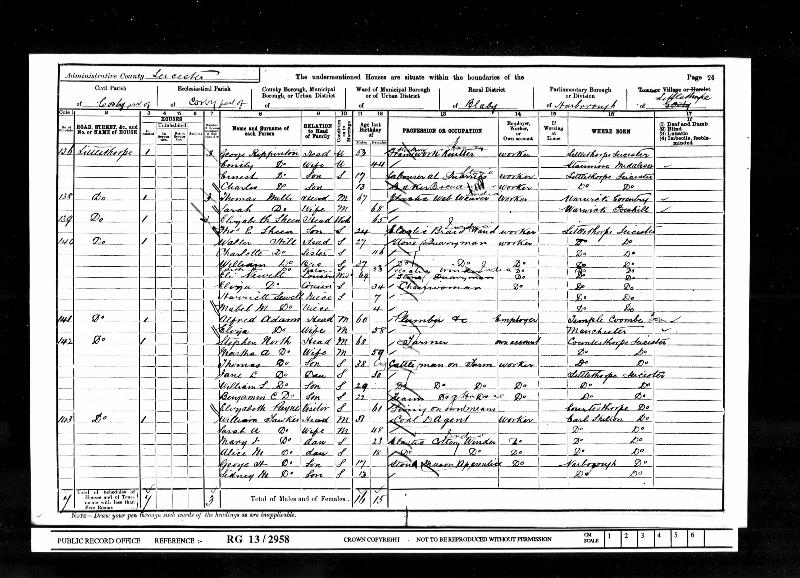 Administrative County Leicester
The undermentioned Houses are situate within the boundaries of the
Page 26
Civil Parish
Ecclesiastical Parish
County Borough, Municipal Borough, or Urban District
Ward of Municipal Borough or of Urban District
Rural District
Parliamentary Borough or Division
of Cosby part of
of Cosby part of
of
of
of Blaby
of Narborough
of Littlethorpe
ROAD, STREET, &c., and No. or NAME of HOUSE
HOUSES
Name and Surname of each Person
RELATION to Head of Family
Age last Birthday of
PROFESSION OR OCCUPATION
Employer, Worker, or Own account
If Working at Home
WHERE BORN
(1) Deaf and Dumb (2) Blind (3) Lunatic (4) Imbecile, feeble-minded
Littlethorpe 1 3 George Ruppinton Head W 53 Framework Knitter worker Littlethorpe Leicester
Emily Do Wife 44 Middlesex
Ernest Do Son S 17 Labourer at Quarries worker Littlethorpe Leicester
Charles Do Son 13 Baker Bread Do Do
138 Do 1 Thomas Mills Head M 67 Elastic Web Weaver Worker Warwick Coventry
Sarah Do Wife M 68 Warwick Foleshill
139 Do 1 Elizabeth Sheen Head Wid 65
Thos E Sheen Son S 24 Elastic Braid Hand Worker Littlethorpe Leicester
140 Do 1 Walter Hill Head S 27 Stone Quarryman worker Do Do
Charlotte Do Sister S 16 Do Do
William Do Bro S 37 Do Do Do Do Do
Do Sister S 23 Winder Do Do Do
Eli Newell Cousin Wid 69 Stone Quarryman Do Do Do
Eliza Do Cousin S 34 Charwoman Do Do Do
Harriett Sewell Niece S 7 Do Do
Mabel M Do Niece 4 Do Do
141 Do 1 Alfred Adams Head M 60 Plumber &c Employer Temple Coombe Som
Eliza Do Wife M 58 Manchester
142 Do 1 Stephen North Head M 68 Farmer own account Countesthorpe Leicester
Martha A Do Wife M 59 Do Do
Thomas Do Son S 38 Cattleman on Farm worker Do Do
Jane E Do Dau S 30 Littlethorpe Leicester
William L Do Son S 29 Do Do Do Do Do Do
Benjamin C Do Son S 22 Do Do
Elizabeth Payne Visitor S 61 Living on own means Countesthorpe Do
143 Do 1 William Fawkes Head M 51 Coal Agent Worker Earl Shilton Do
Sarah A Do Wife M 48 Do Do
Mary J Do dau S 23 Elastic Cotton Winder Do Do Do
Alice M Do dau S 18 Do Do Do Do Do
George H Do Son S 17 Stone Mason Apprentice Do Narborough Do
Sidney M Do Son S 13 Do Do
4 Total of Schedules of Houses and of Tenements with less than Five Rooms 4 3 Total of Males and of Females 16 15
NOTE—Draw your pen through such words of the headings as are inapplicable.
PUBLIC RECORD OFFICE REFERENCE :- RG 13/2958 CROWN COPYRIGHT - NOT TO BE REPRODUCED WITHOUT PERMISSION CM SCALE 1 2 3 4 5 6